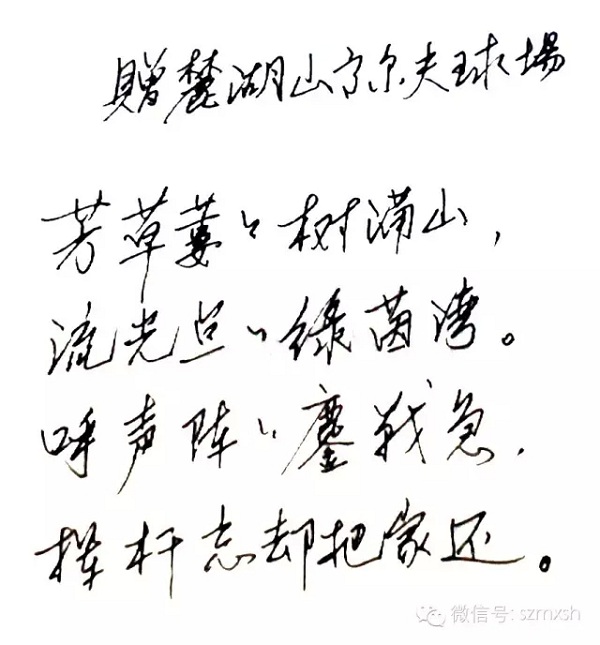 贈麓湖山高尔夫球場
芳草萋〻树满山,
流光点〻绿茵湾。
呼声阵〻鏖战急,
挥杆忘却把家还。
微信号: szmxsh